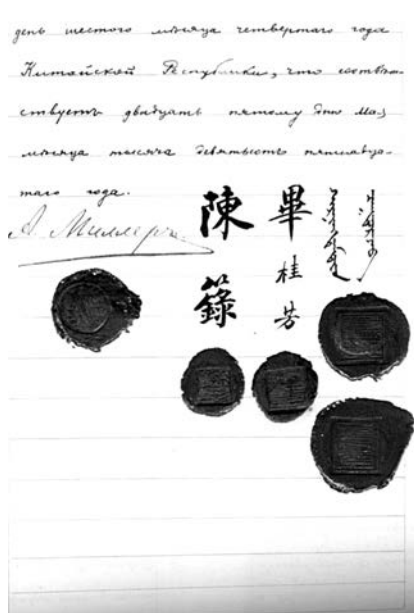 день шестого мѣсяца четвертаго года
Китайской Республики, что соотвѣт-
ствуетъ двадцать пятому дню Мая
мѣсяца тысяча девятьсотъ пятнадца-
таго года.
А. Миллеръ
畢桂芳
陳籙